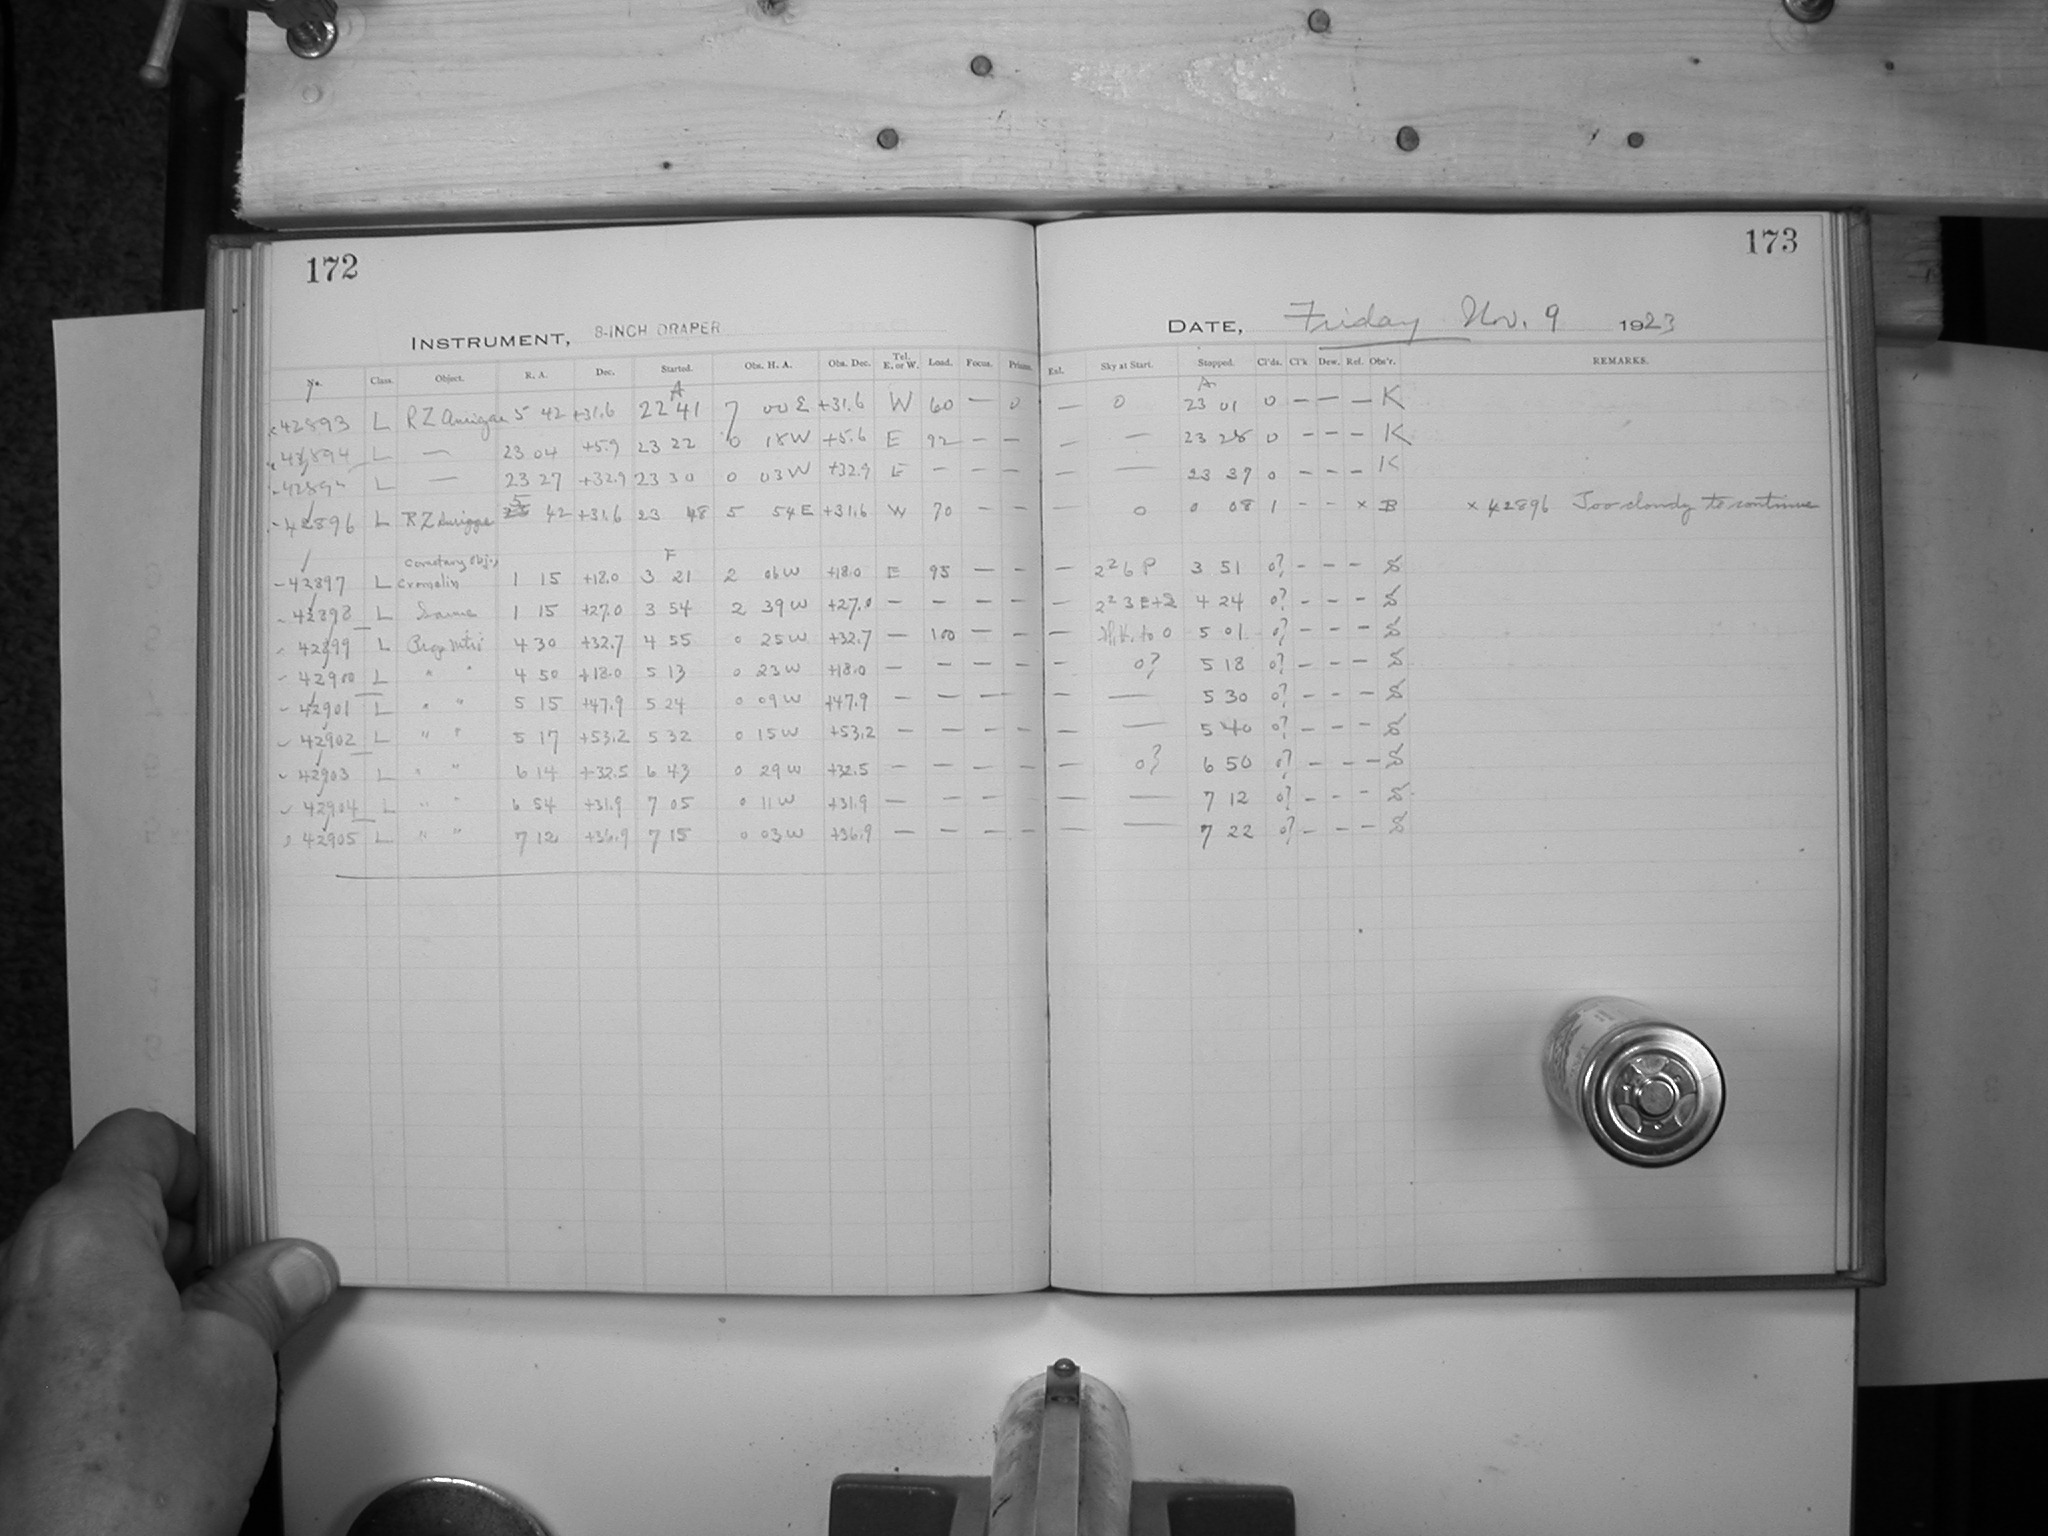 172
173
INSTRUMENT, 8-INCH DRAPER
DATE, Friday Nov. 9 1923
No. Class. Object. R. A. Dec. Started. Obs. H. A. Obs. Dec. Tel. E. or W. Load. Focus. Prisms. Exl. Sky at Start. Stopped. Cl'ds. Cl'k Dew. Rel. Obs'r. REMARKS.
A A
42893 L RZ Aurigae 5 42 +31.6 22 41 7 00 E +31.6 W 60 — 0 — 0 23 01 0 — — — K
42894 L — 23 04 +5.9 23 22 0 18 W +5.6 E 92 — — — — 23 28 0 — — — K
42895 L — 23 27 +32.9 23 30 0 03 W +32.9 E — — — — — 23 37 0 — — — K
42896 L RZ Aurigae 5 42 +31.6 23 48 5 54 E +31.6 W 70 — — — 0 0 08 1 - - x B x 42896 Too cloudy to continue
Cometary Obj., F
42897 L Cromelin 1 15 +18.0 3 21 2 06 W +18.0 E 95 — — — 2²6 P 3 51 0? - - - S
42898 L Same 1 15 +27.0 3 54 2 39 W +27.0 — — — — — 2²3 E+S 4 24 0? - - - S
42899 L 4 30 +32.7 4 55 0 25 W +32.7 — 100 — — — to 0 5 01 0? - - - S
42900 L " " 4 50 +18.0 5 13 0 23 W +18.0 — — — — — 0? 5 18 0? - - - S
42901 L " " 5 15 +47.9 5 24 0 09 W +47.9 — — — — — — 5 30 0? - - - S
42902 L " " 5 17 +53.2 5 32 0 15 W +53.2 — — — — — — 5 40 0? - - - S
42903 L " " 6 14 +32.5 6 43 0 29 W +32.5 — — — — — 0? 6 50 0? - - - S
42904 L " " 6 54 +31.9 7 05 0 11 W +31.9 — — — — — — 7 12 0? - - - S
42905 L " " 7 12 +36.9 7 15 0 03 W +36.9 — — — — — — 7 22 0? - - - S